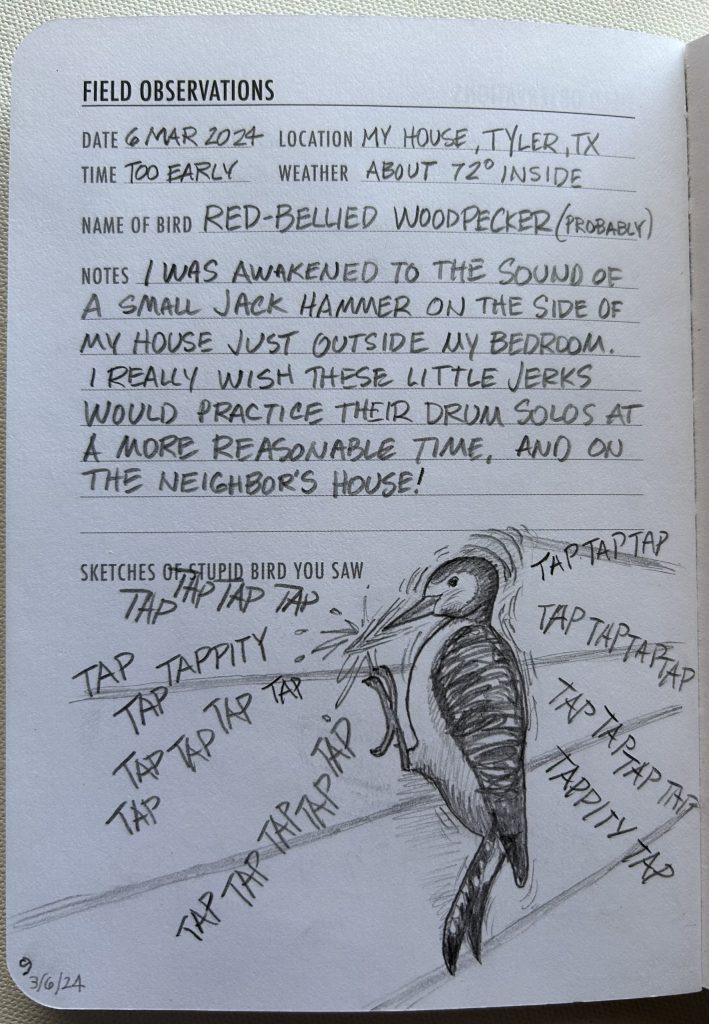 FIELD OBSERVATIONS
DATE 6 MAR 2024 LOCATION MY HOUSE, TYLER, TX
TIME TOO EARLY WEATHER ABOUT 72° INSIDE
NAME OF BIRD RED-BELLIED WOODPECKER (PROBABLY)
NOTES I WAS AWAKENED TO THE SOUND OF
A SMALL JACK HAMMER ON THE SIDE OF
MY HOUSE JUST OUTSIDE MY BEDROOM.
I REALLY WISH THESE LITTLE JERKS
WOULD PRACTICE THEIR DRUM SOLOS AT
A MORE REASONABLE TIME, AND ON
THE NEIGHBOR'S HOUSE!
SKETCHES OF STUPID BIRD YOU SAW
TAP TAP TAP TAP
TAP TAPPITY
TAP TAP TAP TAP TAP
TAP
TAP TAP TAP TAP TAP
TAP TAP TAP
TAP TAP TAP TAP
TAP TAP TAP TAP
TAPPITY TAP
9
3/6/24